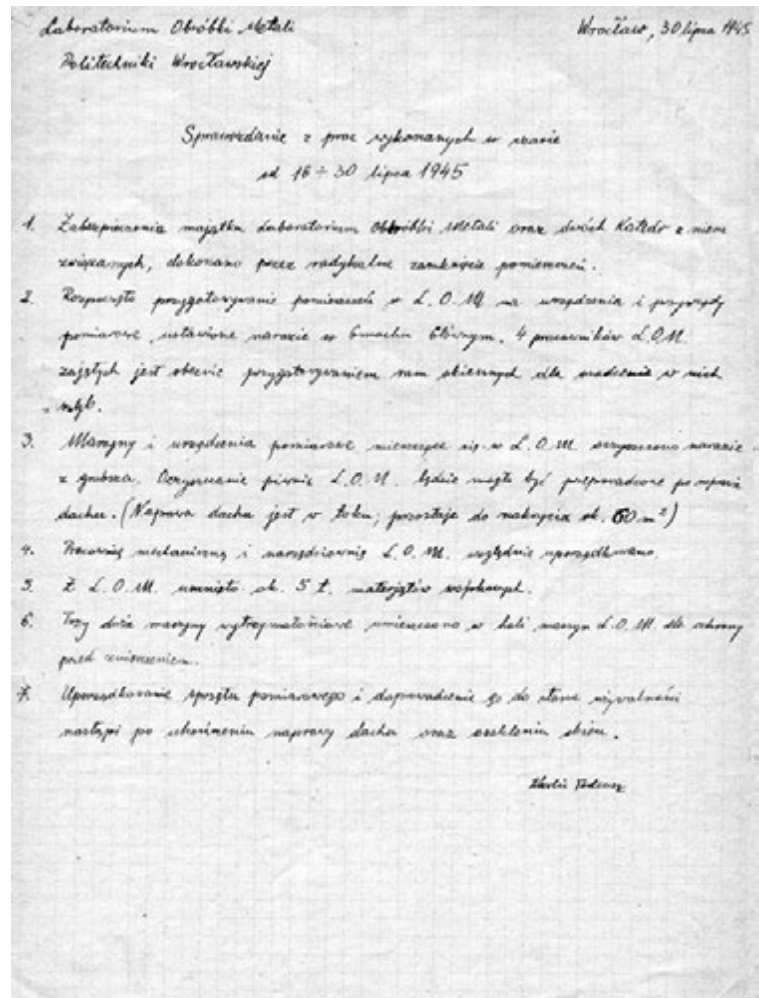 Laboratorium Obróbki Metali
Wrocław, 30 lipca 1945
Politechniki Wrocławskiej
Sprawozdanie z prac wykonanych w czasie
od 16 ÷ 30 lipca 1945
1. Zabezpieczenia majątku Laboratorium Obróbki Metali oraz dwóch Katedr z niem
związanych, dokonano przez radykalne zamknięcie pomieszczeń.
2. Rozpoczęto przygotowywanie pomieszczeń w L.O.M. na urządzenia i przyrządy
pomiarowe ustawione narazie w Gmachu Głównym. 4 pracowników L.O.M.
zajętych jest obecnie przygotowywaniem ram okiennych dla osadzenia w nich
szyb.
3. Maszyny i urządzenia pomiarowe mieszczące się w L.O.M. oczyszczono narazie
z grubsza. Oczyszczanie piwnic L.O.M. będzie mogło być przeprowadzone po naprawie
dachu. (Naprawa dachu jest w toku; pozostaje do nakrycia ok. 60 m²)
4. Pracownię mechaniczną i narzędziownię L.O.M. względnie uporządkowano.
5. Z L.O.M. usunięto ok. 5 t. materjałów wojskowych.
6. Trzy duże maszyny wytrzymałościowe umieszczono w hali maszyn L.O.M. dla ochrony
przed zniszczeniem.
7. Uporządkowanie sprzętu pomiarowego i doprowadzenie go do stanu używalności
nastąpi po ukończeniu naprawy dachu oraz oszkleniu okien.
Tadeusz